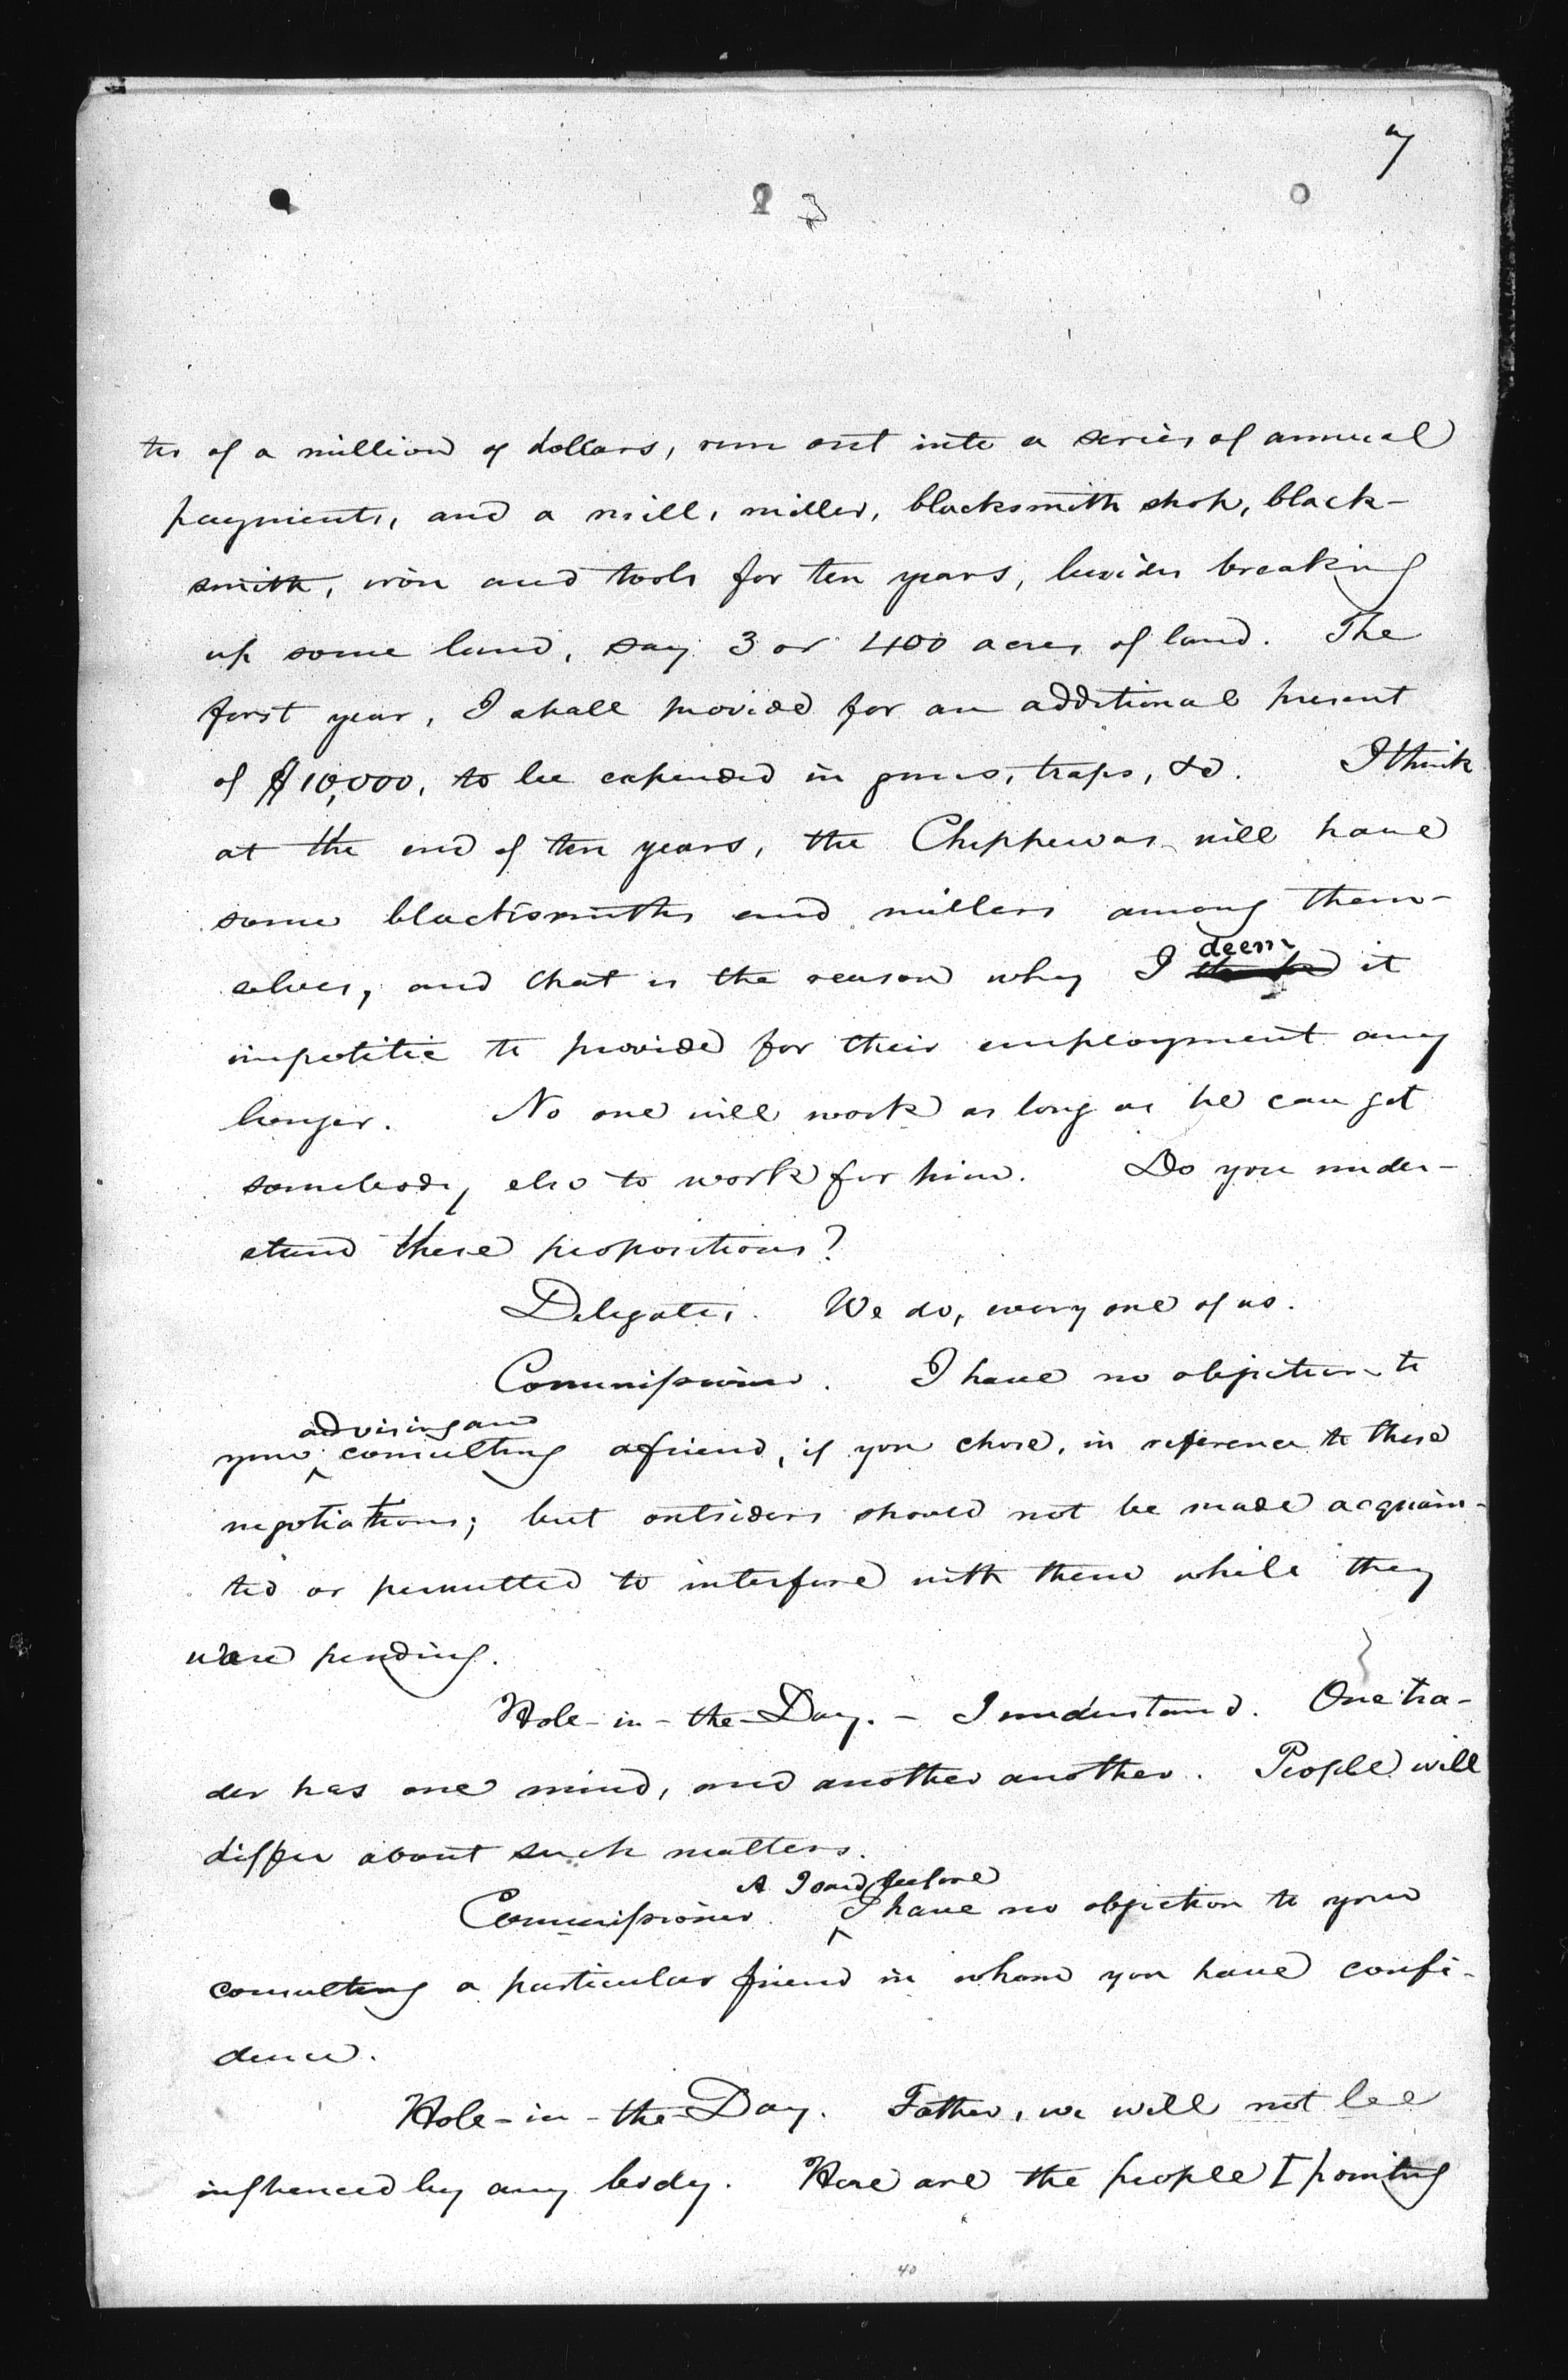 7
ter of a million of dollars, run out into a series of annual
payments, and a mill, miller, blacksmith shop, black-
smith, iron and tools for ten years, besides breaking
up some land, say 3 or 400 acres of land. The
first year, I shall provide for an additional present
of $10,000, to be expended in guns, traps, &c. I think
at the end of ten years, the Chippewas will have
some blacksmiths and millers among them-
selves, and that is the reason why I deem it
impolitic to provide for their employment any
longer. No one will work as long as he can get
somebody else to work for him. Do you under-
stand these propositions?
Delegates. We do, every one of us.
Commissioner. I have no objection to
advising and
your consulting a friend, if you chose, in reference to these
negotiations; but outsiders should not be made acquain-
ted or permitted to interfere with them while they
were pending.
Hole-in-the-Day. - I understand. One tra-
der has one mind, and another another. People will
differ about such matters.
As I said before
Commissioner. I have no objection to your
consulting a particular friend in whom you have confi-
dence.
Hole-in-the-Day. Father, we will not be
influenced by any body. Here are the people [pointing
40